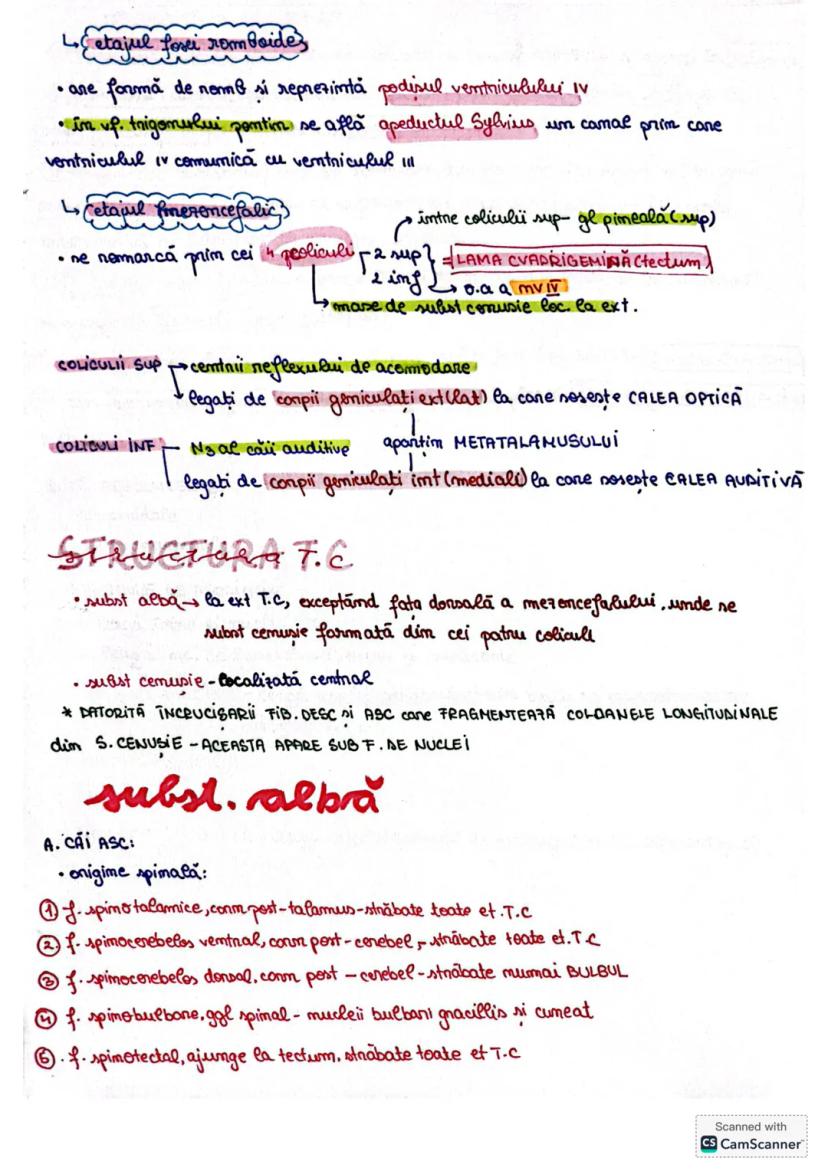 ↳ etajul fosei romboide
• are formă de romb și reprezintă podișul ventriculului IV
• în vf. trigonului pontin se află apeductul Sylvius, un canal prin care
ventriculul IV comunică cu ventriculul III
↳ etajul mezencefalic
→ între coliculii sup - gl pineală (sup)
• se remarcă prin cei 4 coliculi 2 sup = LAMA CVADRIGEMINĂ (tectum)
2 inf → o.a a mv IV
→ mase de subst cenușie loc. la ext.
COLICULII SUP → centrii reflexului de acomodare
→ legați de corpii geniculați ext (lat) la care sosește CALEA OPTICĂ
aparțin METATALAMUSULUI
COLICULI INF - N3 al căii auditive
legați de corpii geniculați int (mediali) la care sosește CALEA AUDITIVĂ
STRUCTURA T.C
• subst albă → la ext T.C, exceptând fața dorsală a mezencefalului, unde se
subst cenușie formată din cei patru coliculi
• subst cenușie - localizată central
* DATORITĂ ÎNCRUCIȘĂRII FIB. DESC și ASC care FRAGMENTEAZĂ COLOANELE LONGITUDINALE
din S. CENUȘIE - ACEASTA APARE SUB F. DE NUCLEI
subst. albă
A. CĂI ASC:
• origine spinală:
① f. spinotalamice, corn post - talamus - străbate toate et. T.C
② f. spinocerebelos ventral, corn post - cerebel, - străbate toate et. T.C
③ f. spinocerebelos dorsal, corn post - cerebel - străbate numai BULBUL
④ f. spinobulbare, ggl spinal - nucleii bulbari gracillis și cuneat
⑤ . f. spinotectal, ajunge la tectum, străbate toate et T.C
Scanned with
CS CamScanner